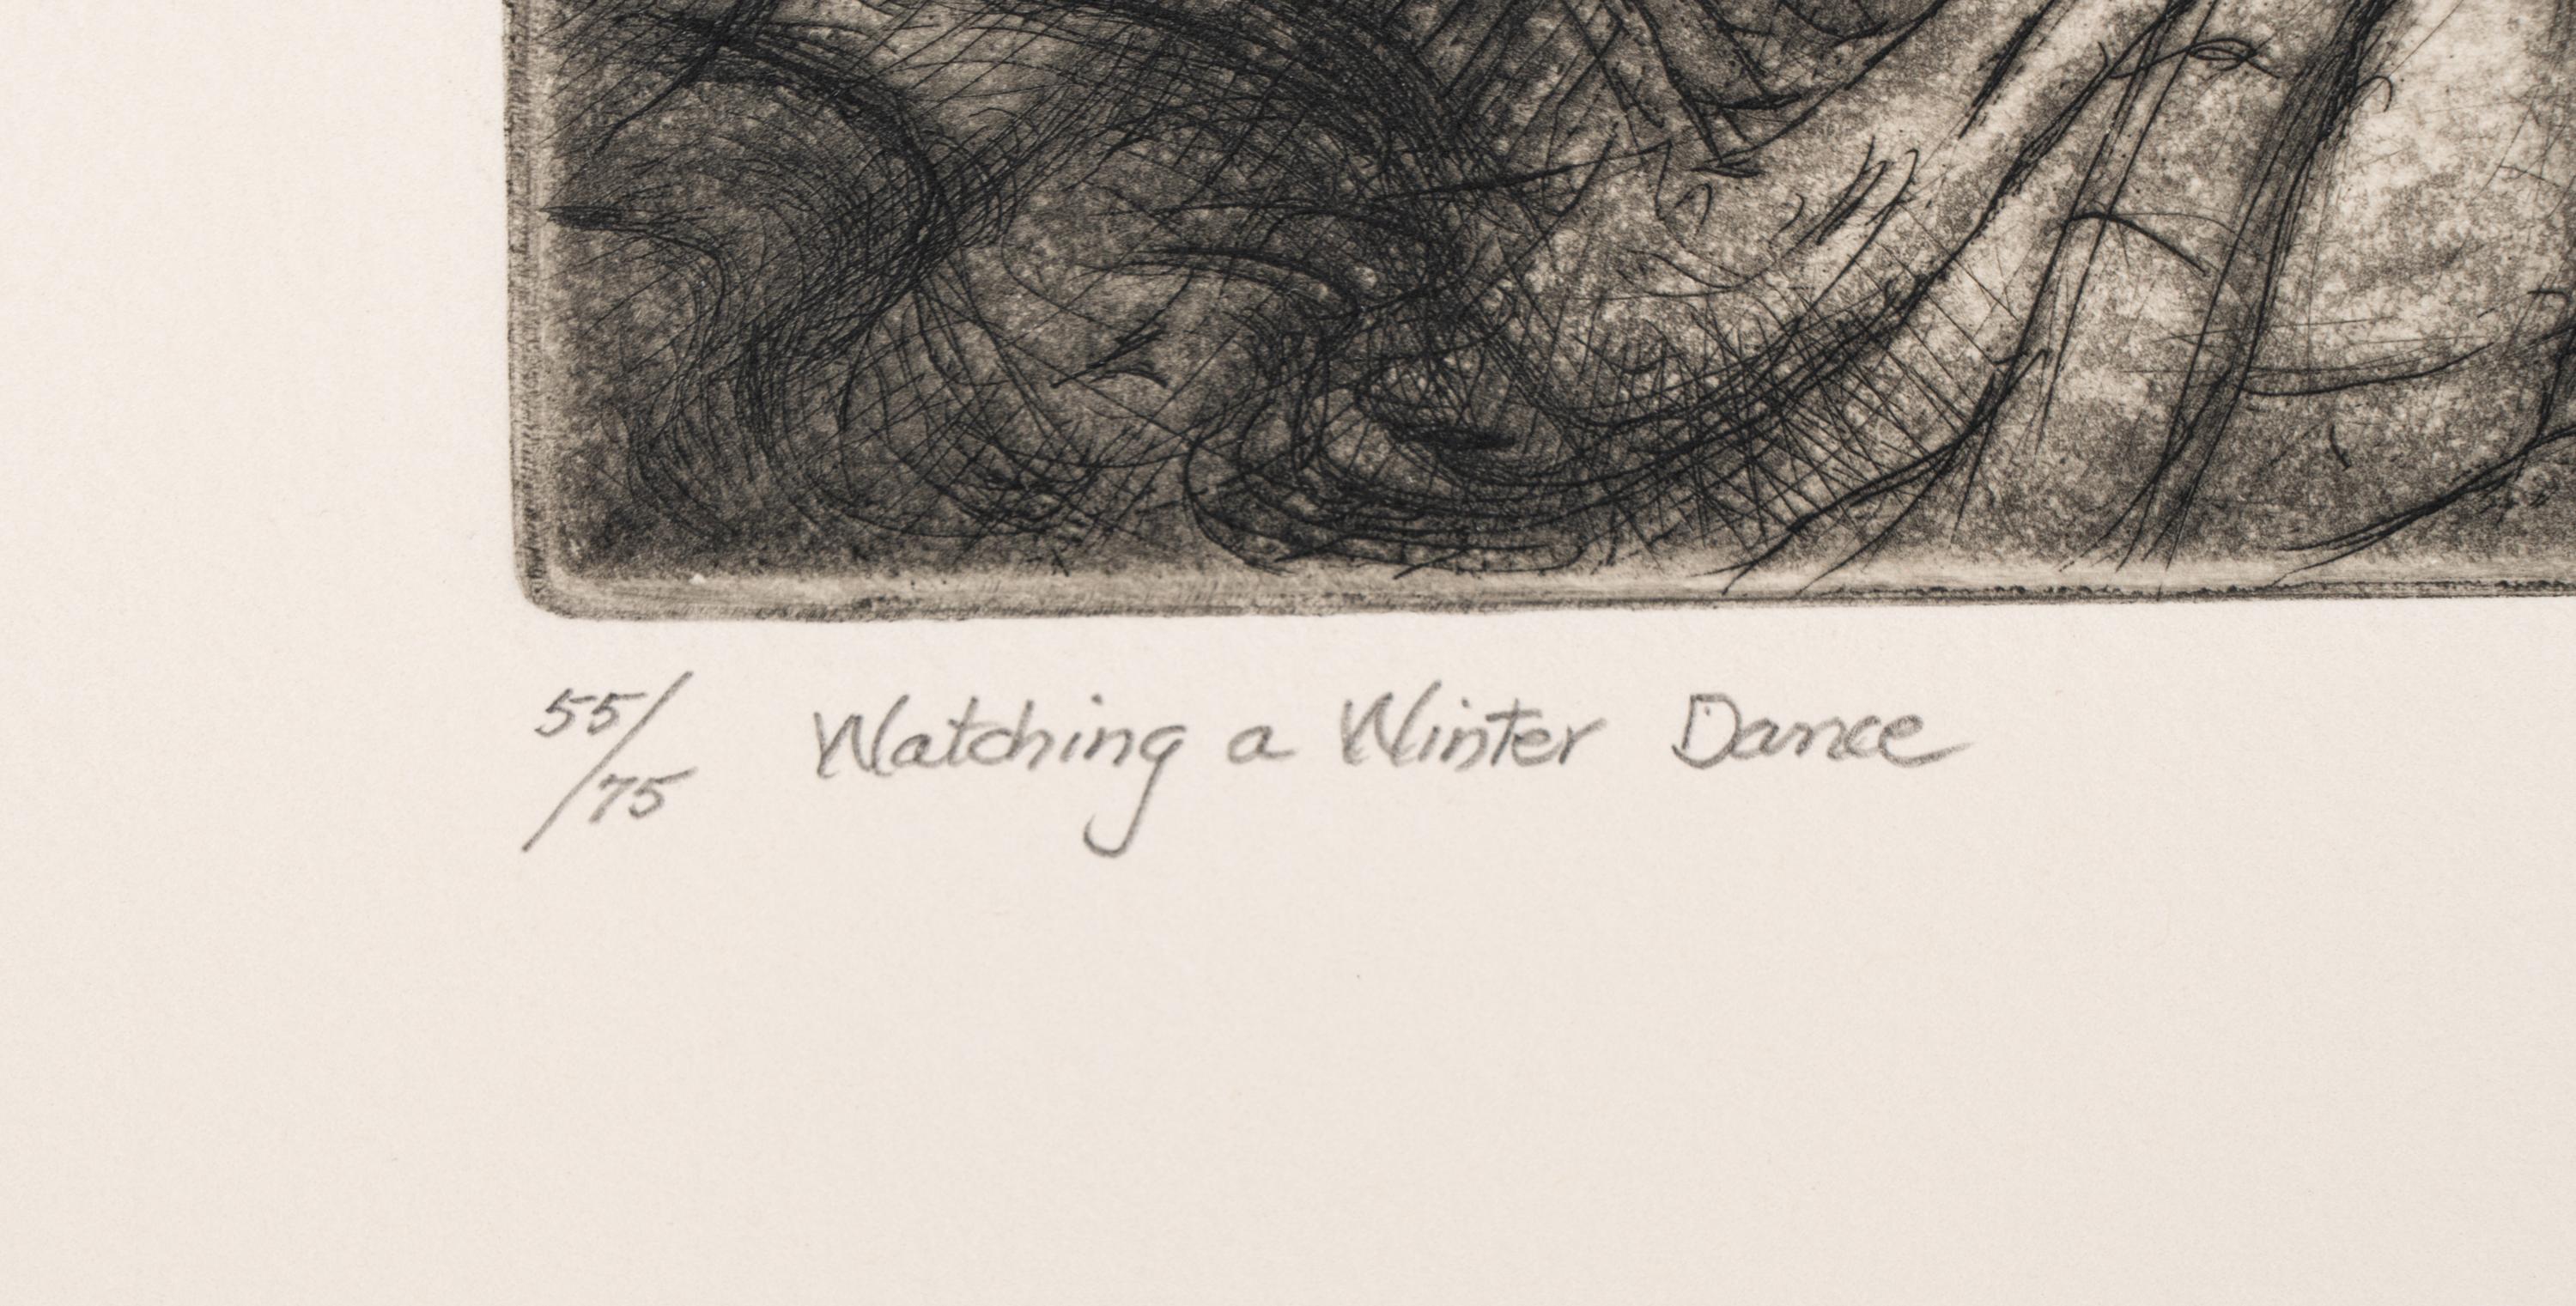 55/75 Watching a Winter Dance